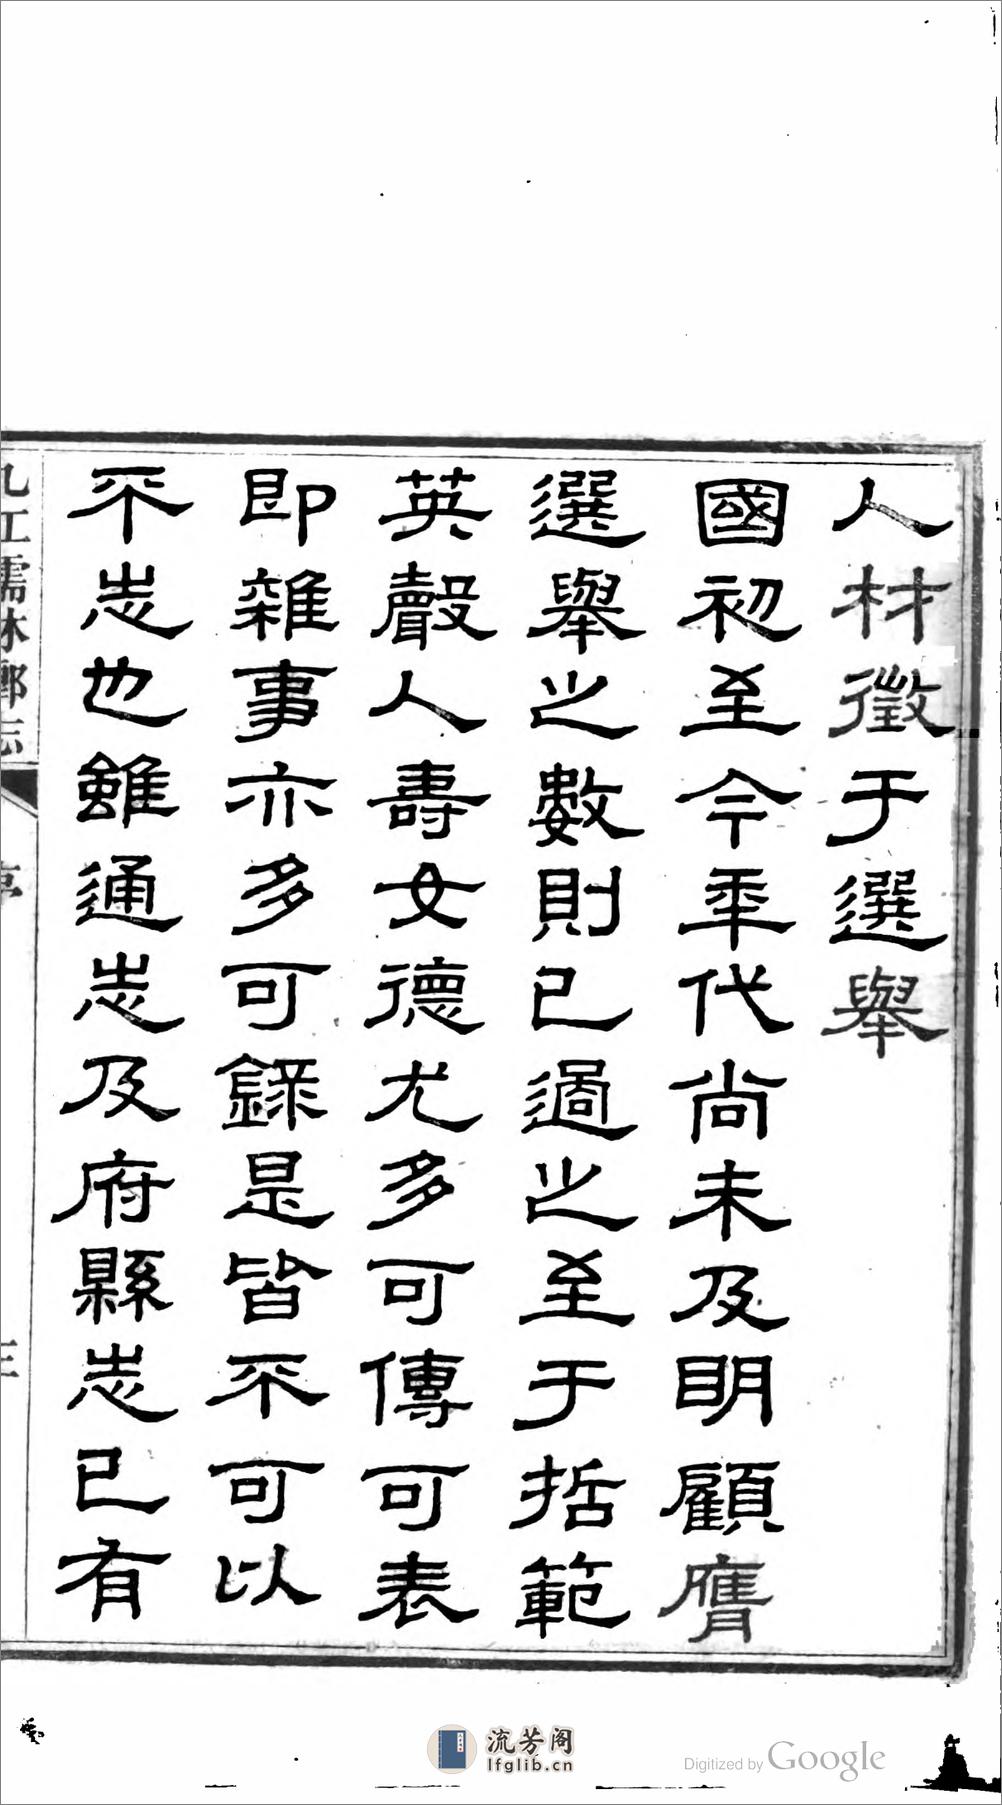 人材徵于選舉
國初至今年代尚未及明顧膺
選舉之數則已過之至于哲範
英聲人壽女德尤多可傳可表
即雜事亦多可錄是皆不可以
不志也雖通志及府縣志已有
九江儒林鄉志
序
三
流芳阁
lfglib.cn
Digitized by Google